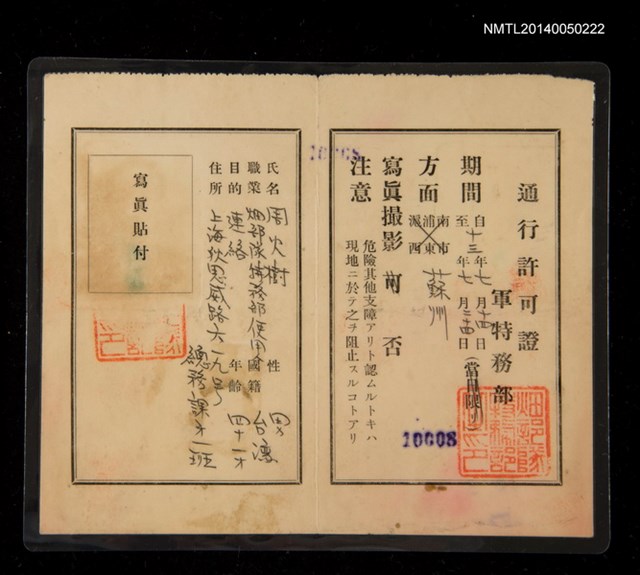 NMTL20140050222
通行許可證
軍特務部
期間 自十三年七月十四日
至 年七月二十四日(當日限リ)
方面 南市 浦東 滬西 蘇州
寫眞撮影 可 否
注意 危險其他支障アリト認ムルトキハ
現地ニ於テ之ヲ阻止スルコトアリ
10008
10008
畑部隊特務部之印
氏名 周火樹 性 男
職業 畑部隊特務部使用 國籍 台灣
目的 連絡 年齡 四十一才
住所 上海狄思威路六一九号
總務課才一班
寫眞貼付